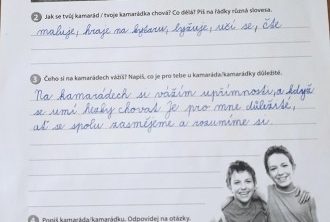 2 Jak se tvůj kamarád / tvoje kamarádka chová? Co dělá? Piš na řádky různá slovesa.
maluje, hraje na kytaru, lyžuje, učí se, čte
3 Čeho si na kamarádech vážíš? Napiš, co je pro tebe u kamaráda/kamarádky důležité.
Na kamarádech si vážím upřímnosti, a když
se umí hezky chovat. Je pro mne důležité,
ať se spolu zasmějeme a rozumíme si.
Popiš kamaráda/kamarádku. Odpovídej na otázky.